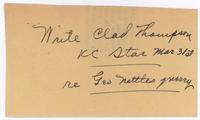 Write Clad Thompson
KC Star Mar 31st
re Geo Nettles query